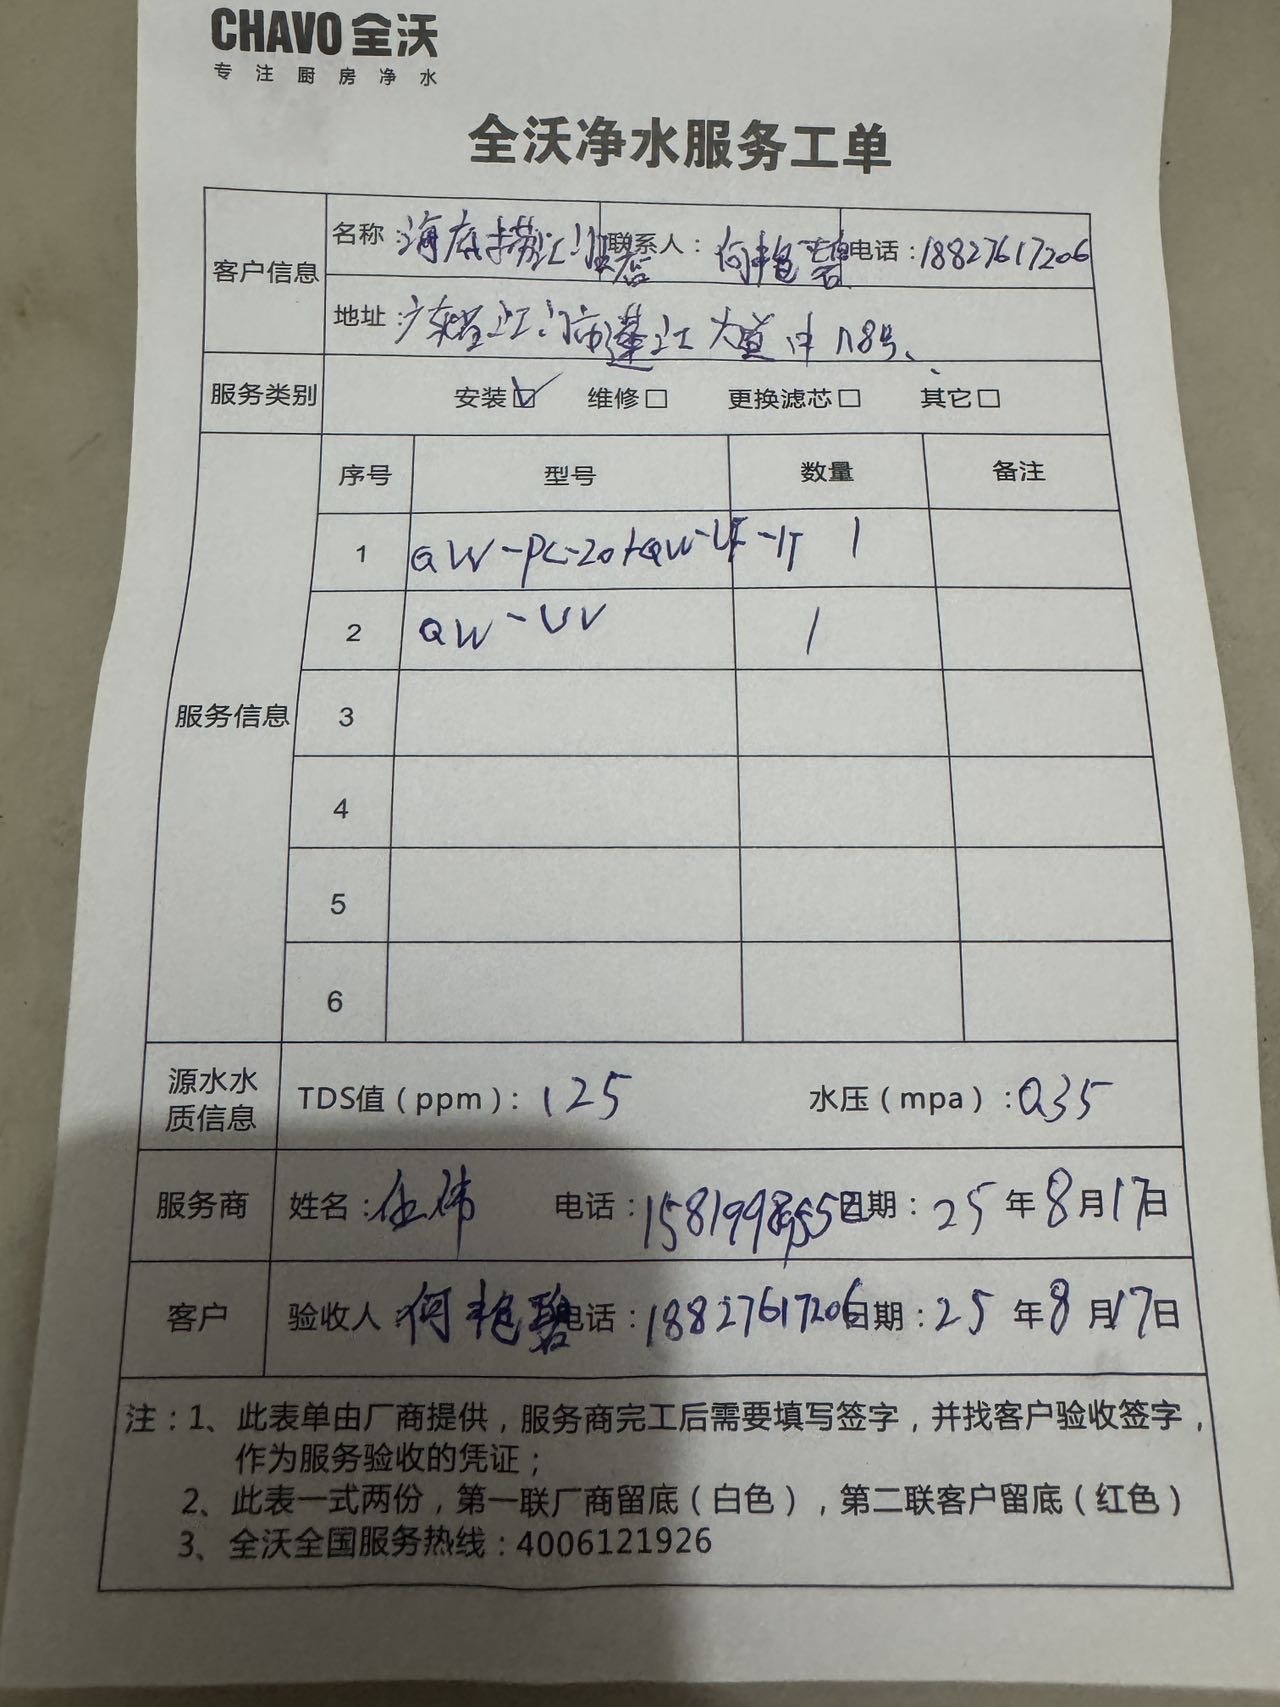 CHAVO 全沃
专注厨房净水
全沃净水服务工单
客户信息
名称：海底捞江门 联系人：何艳碧 电话：18827617206
地址：广东省江门市蓬江大道中118号、
服务类别 安装☑ 维修□ 更换滤芯□ 其它□
服务信息
序号 型号 数量 备注
1 QW-PC-20+QW-UF-1T 1
2 QW-UV 1
3
4
5
6
源水水质信息 TDS值（ppm）：125 水压（mpa）：0.35
服务商 姓名：伍伟 电话： 日期：25年8月17日
客户 验收人：何艳碧 电话：18827617206 日期：25年8月17日
注：1、此表单由厂商提供，服务商完工后需要填写签字，并找客户验收签字，
作为服务验收的凭证；
2、此表一式两份，第一联厂商留底（白色），第二联客户留底（红色）
3、全沃全国服务热线：4006121926